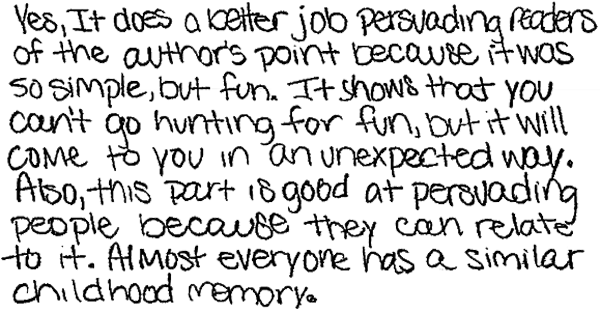 Yes, It does a better job persvading readers
of the author's point because it was
so simple, but fun. It shows that you
can't go hunting for fun, but it will
come to you in an unexpected way.
Also, this part is good at persvading
people because they can relate
to it. Almost everyone has a similar
childhood memory.